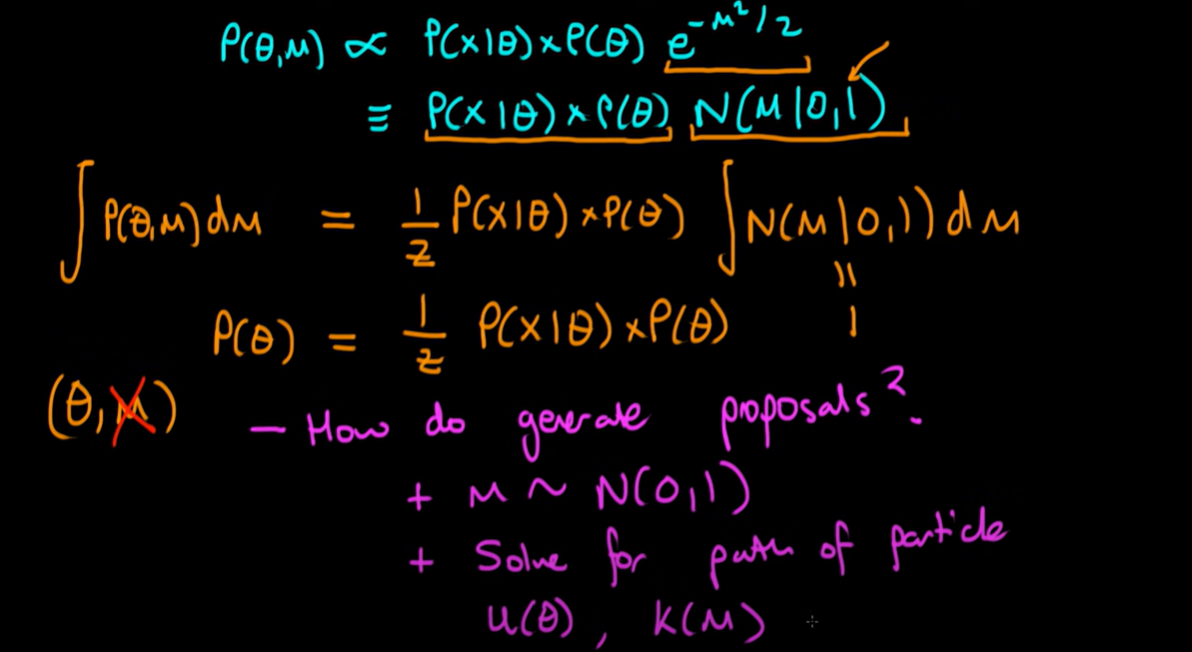 P(θ,m) ∝ P(x|θ)×P(θ) e^{-m²/2}
≡ P(x|θ)×P(θ) N(m|0,1)
∫P(θ,m)dm = 1/z P(x|θ)×P(θ) ∫N(m|0,1)dm
||
P(θ) = 1/z P(x|θ)×P(θ) 1
(θ,m)
- How do generate proposals?
+ m ~ N(0,1)
+ Solve for path of particle
U(θ), K(m)